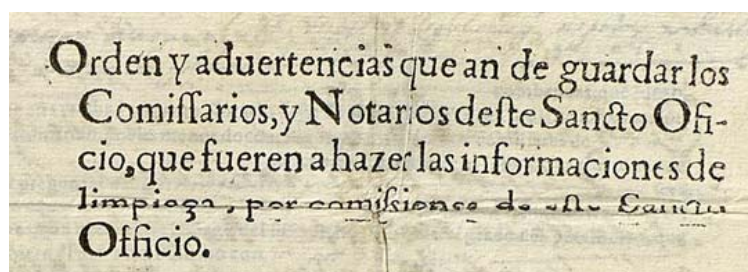 Orden y aduertencias que an de guardar los
Comiſſarios, y Notarios deſte Sancto Ofi-
cio, que fueren a hazer las informaciones de
limpieça, por comiſsiones de eſte Sancto
Officio.